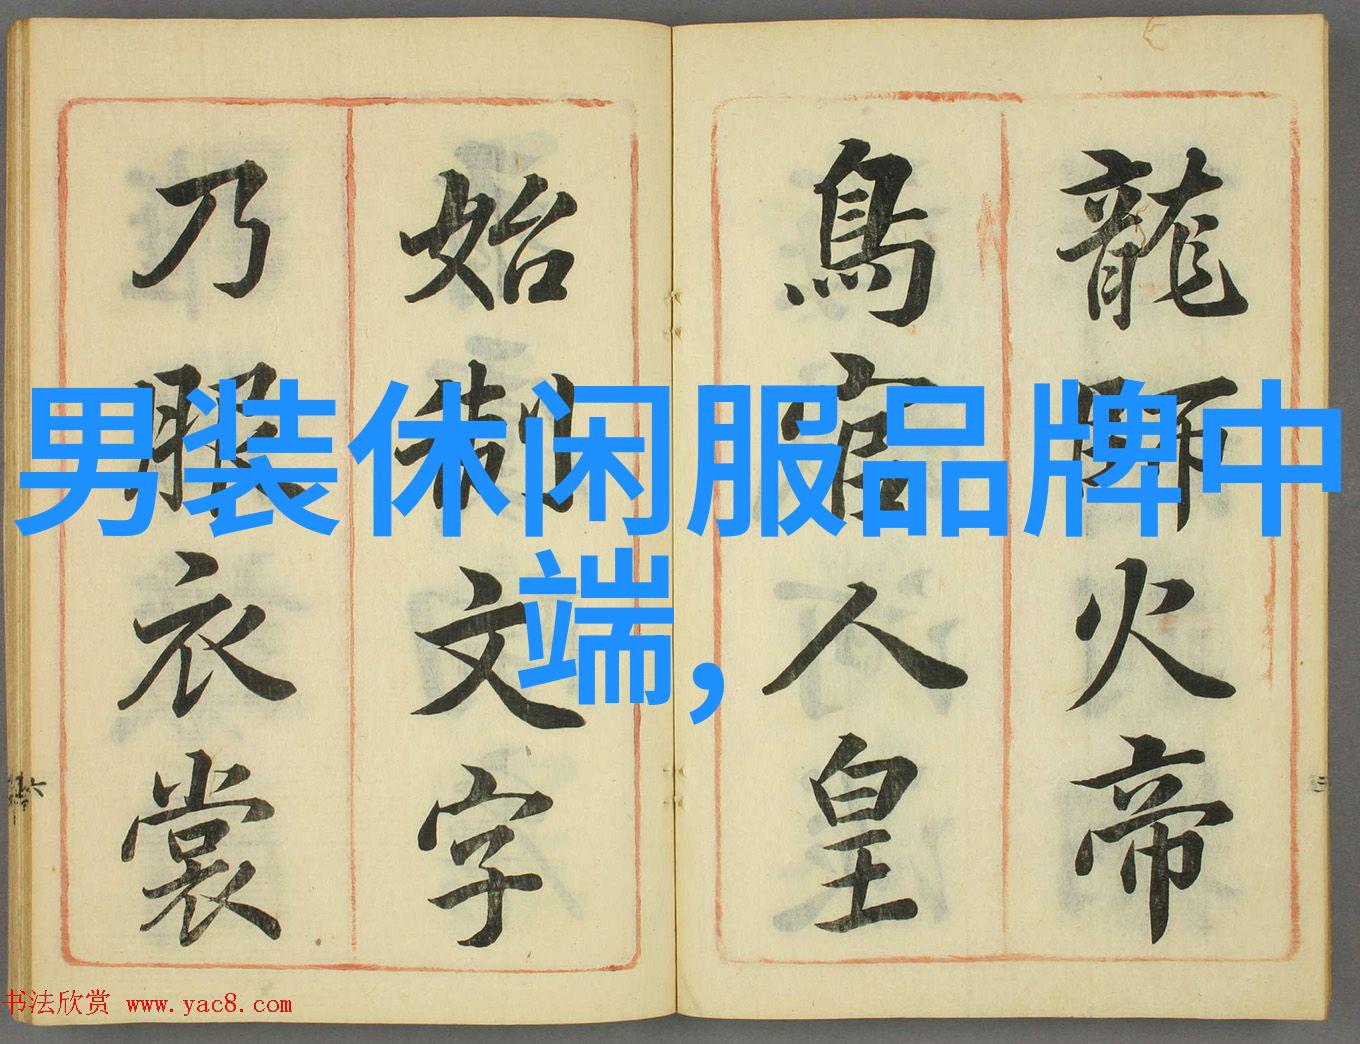 龍師火帝
鳥官人皇
始制文字
乃服衣裳
男装休闲服品牌中
端,
书法欣赏 www.yac8.com